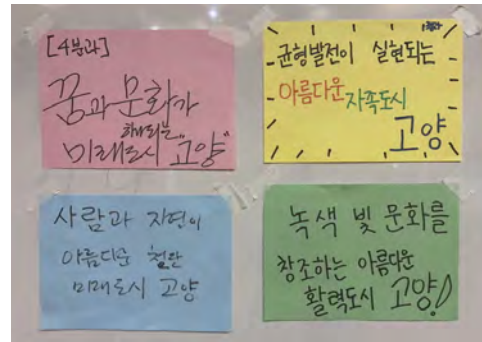 [4분과]
꿈과 문화가
하나되는
미래도시 "고양"
균형발전이 실현되는
아름다운 자족도시
고양
사람과 자연이
아름다운 첨단
미래도시 고양
녹색 빛 문화를
창조하는 아름다운
활력도시 고양!